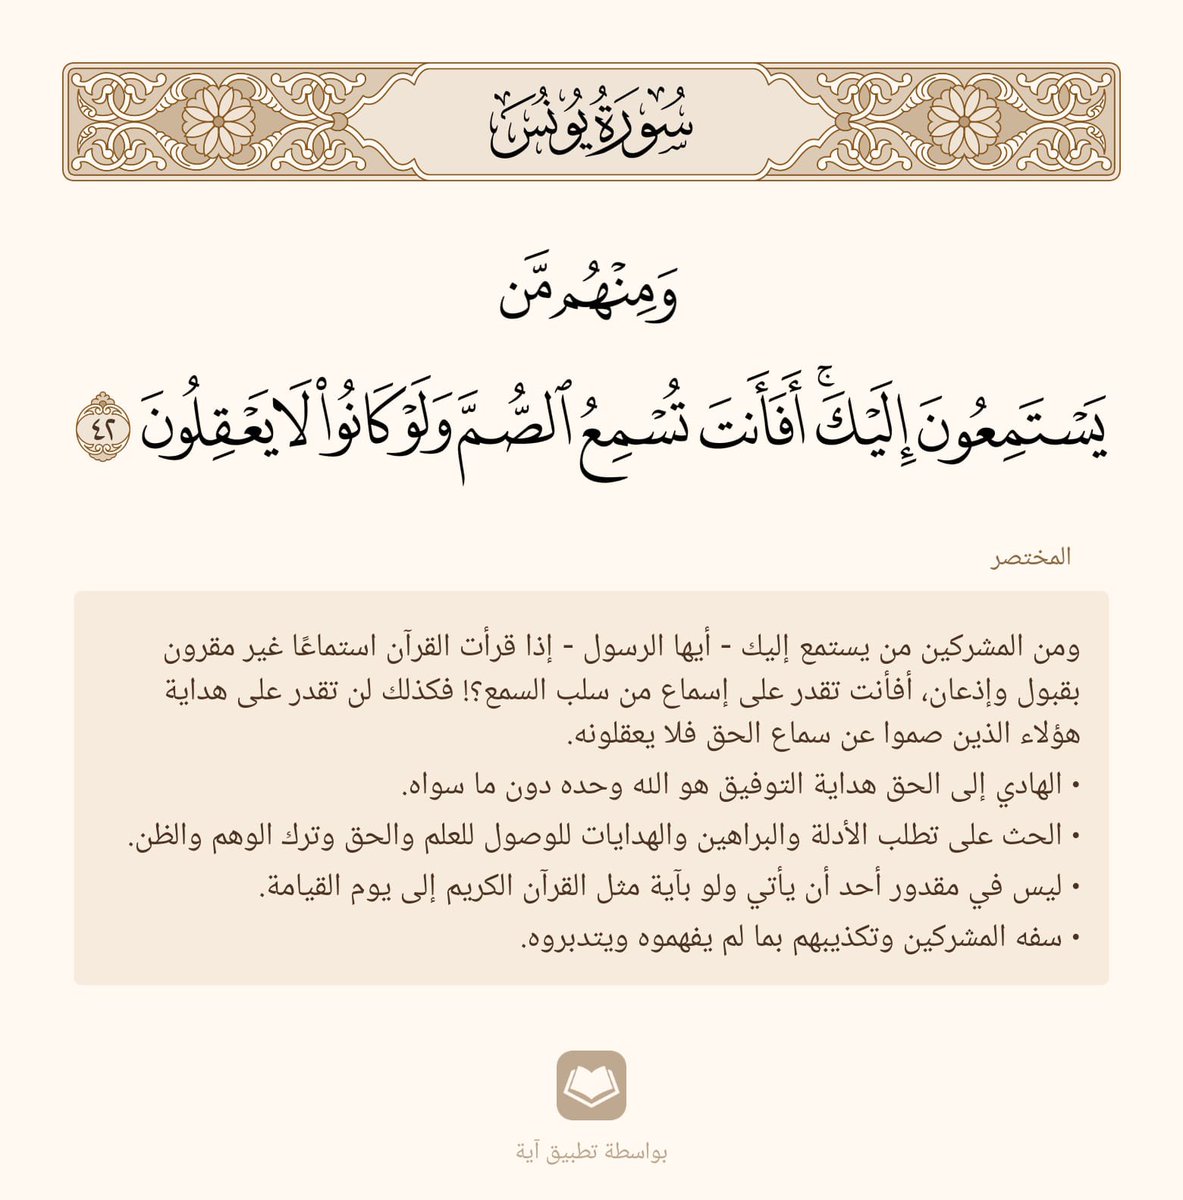 سُورَةُ يُونُسَ
وَمِنۡهُم مَّن
يَسۡتَمِعُونَ إِلَيۡكَۚ أَفَأَنتَ تُسۡمِعُ ٱلصُّمَّ وَلَوۡ كَانُواْ لَا يَعۡقِلُونَ ٤٢
المختصر
ومن المشركين من يستمع إليك - أيها الرسول - إذا قرأت القرآن استماعًا غير مقرون
بقبول وإذعان، أفأنت تقدر على إسماع من سلب السمع؟! فكذلك لن تقدر على هداية
هؤلاء الذين صموا عن سماع الحق فلا يعقلونه.
• الهادي إلى الحق هداية التوفيق هو الله وحده دون ما سواه.
• الحث على تطلب الأدلة والبراهين والهدايات للوصول للعلم والحق وترك الوهم والظن.
• ليس في مقدور أحد أن يأتي ولو بآية مثل القرآن الكريم إلى يوم القيامة.
• سفه المشركين وتكذيبهم بما لم يفهموه ويتدبروه.
بواسطة تطبيق آية